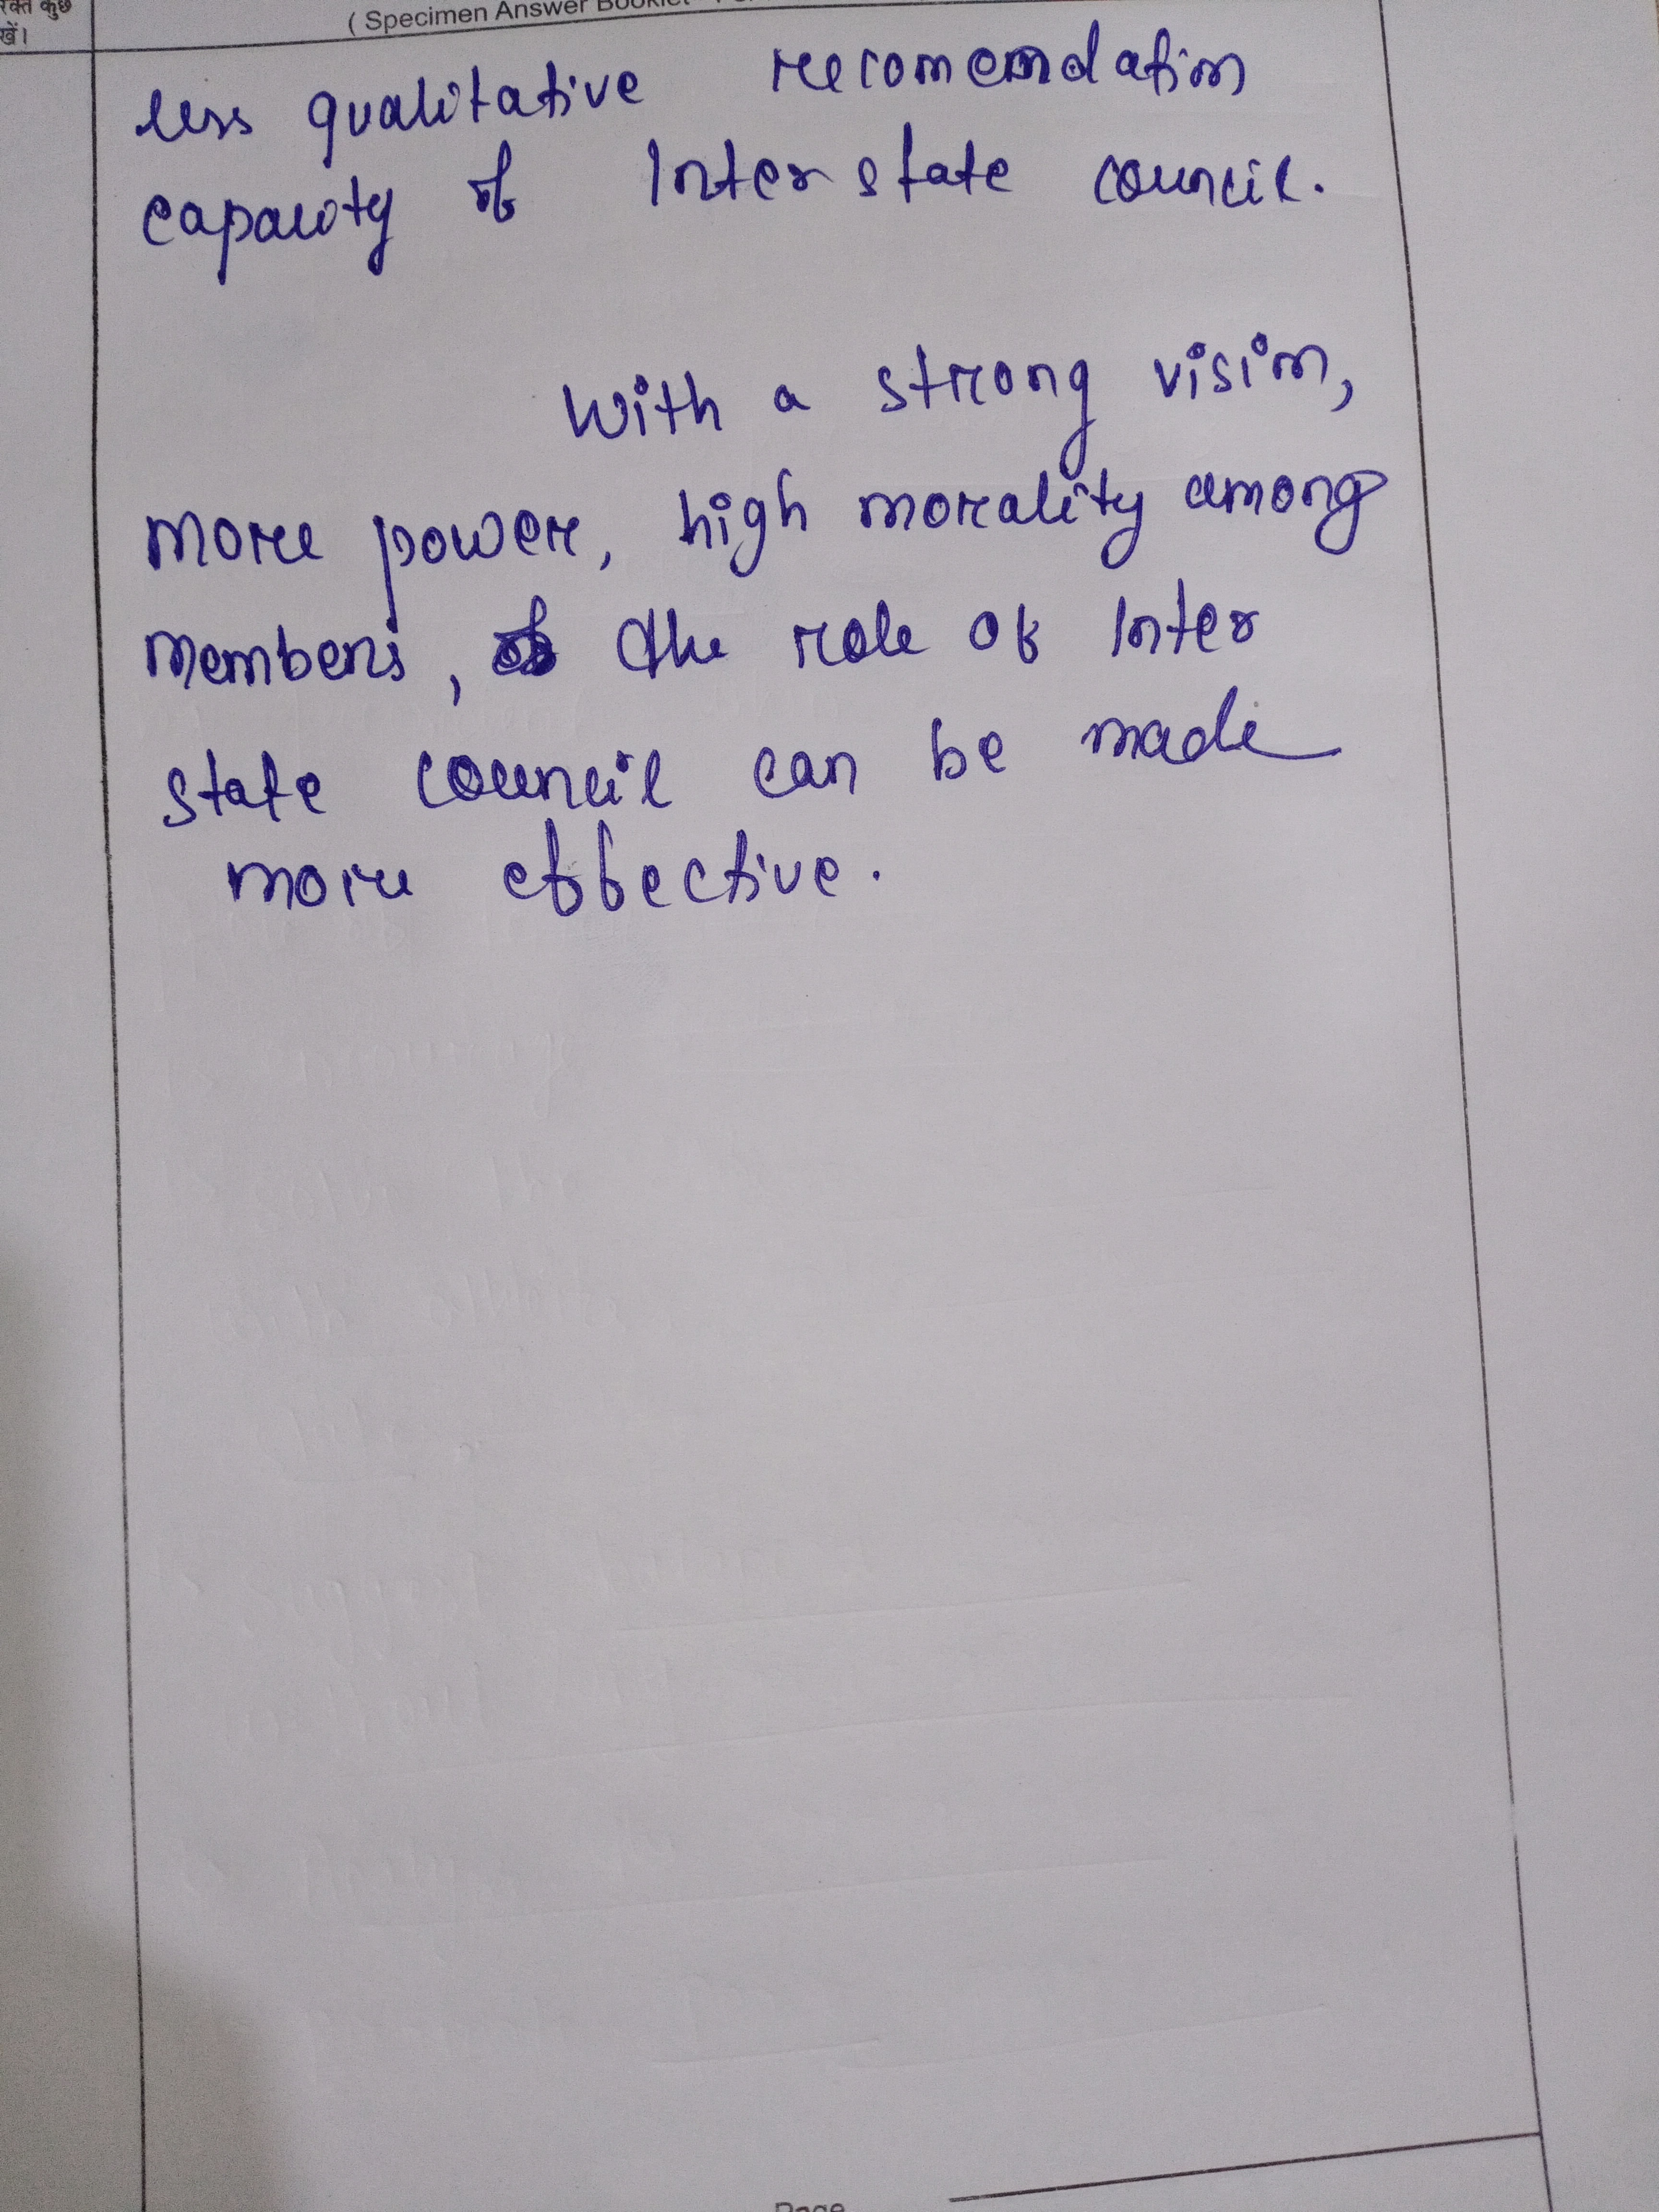 रिक्त कुछ
खें।
( Specimen Answer Booklet
less qualitative recomendation
capacity of Inter state council.
With a strong vision,
more power, high morality among
members, the role of Inter
state council can be made
more effective.
Page